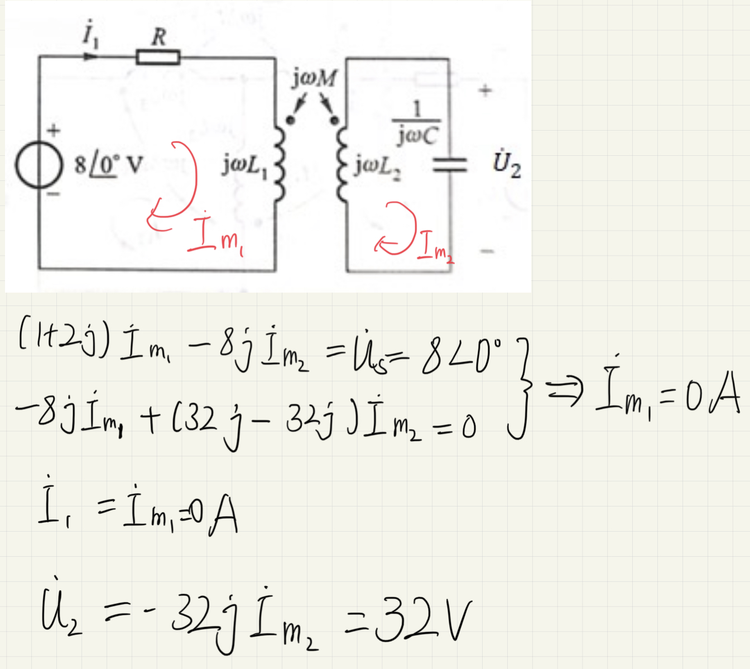 İ₁ R
jωM
+ 8∠0° V −
jωL₁ jωL₂ 1/jωC + U̇₂ −
İm₁ İm₂
(1+2j) İm₁ − 8j İm₂ = U̇s = 8∠0°
−8j İm₁ + (32j − 32j) İm₂ = 0 } ⇒ İm₁ = 0 A
İ₁ = İm₁ = 0 A
U̇₂ = −32j İm₂ = 32V